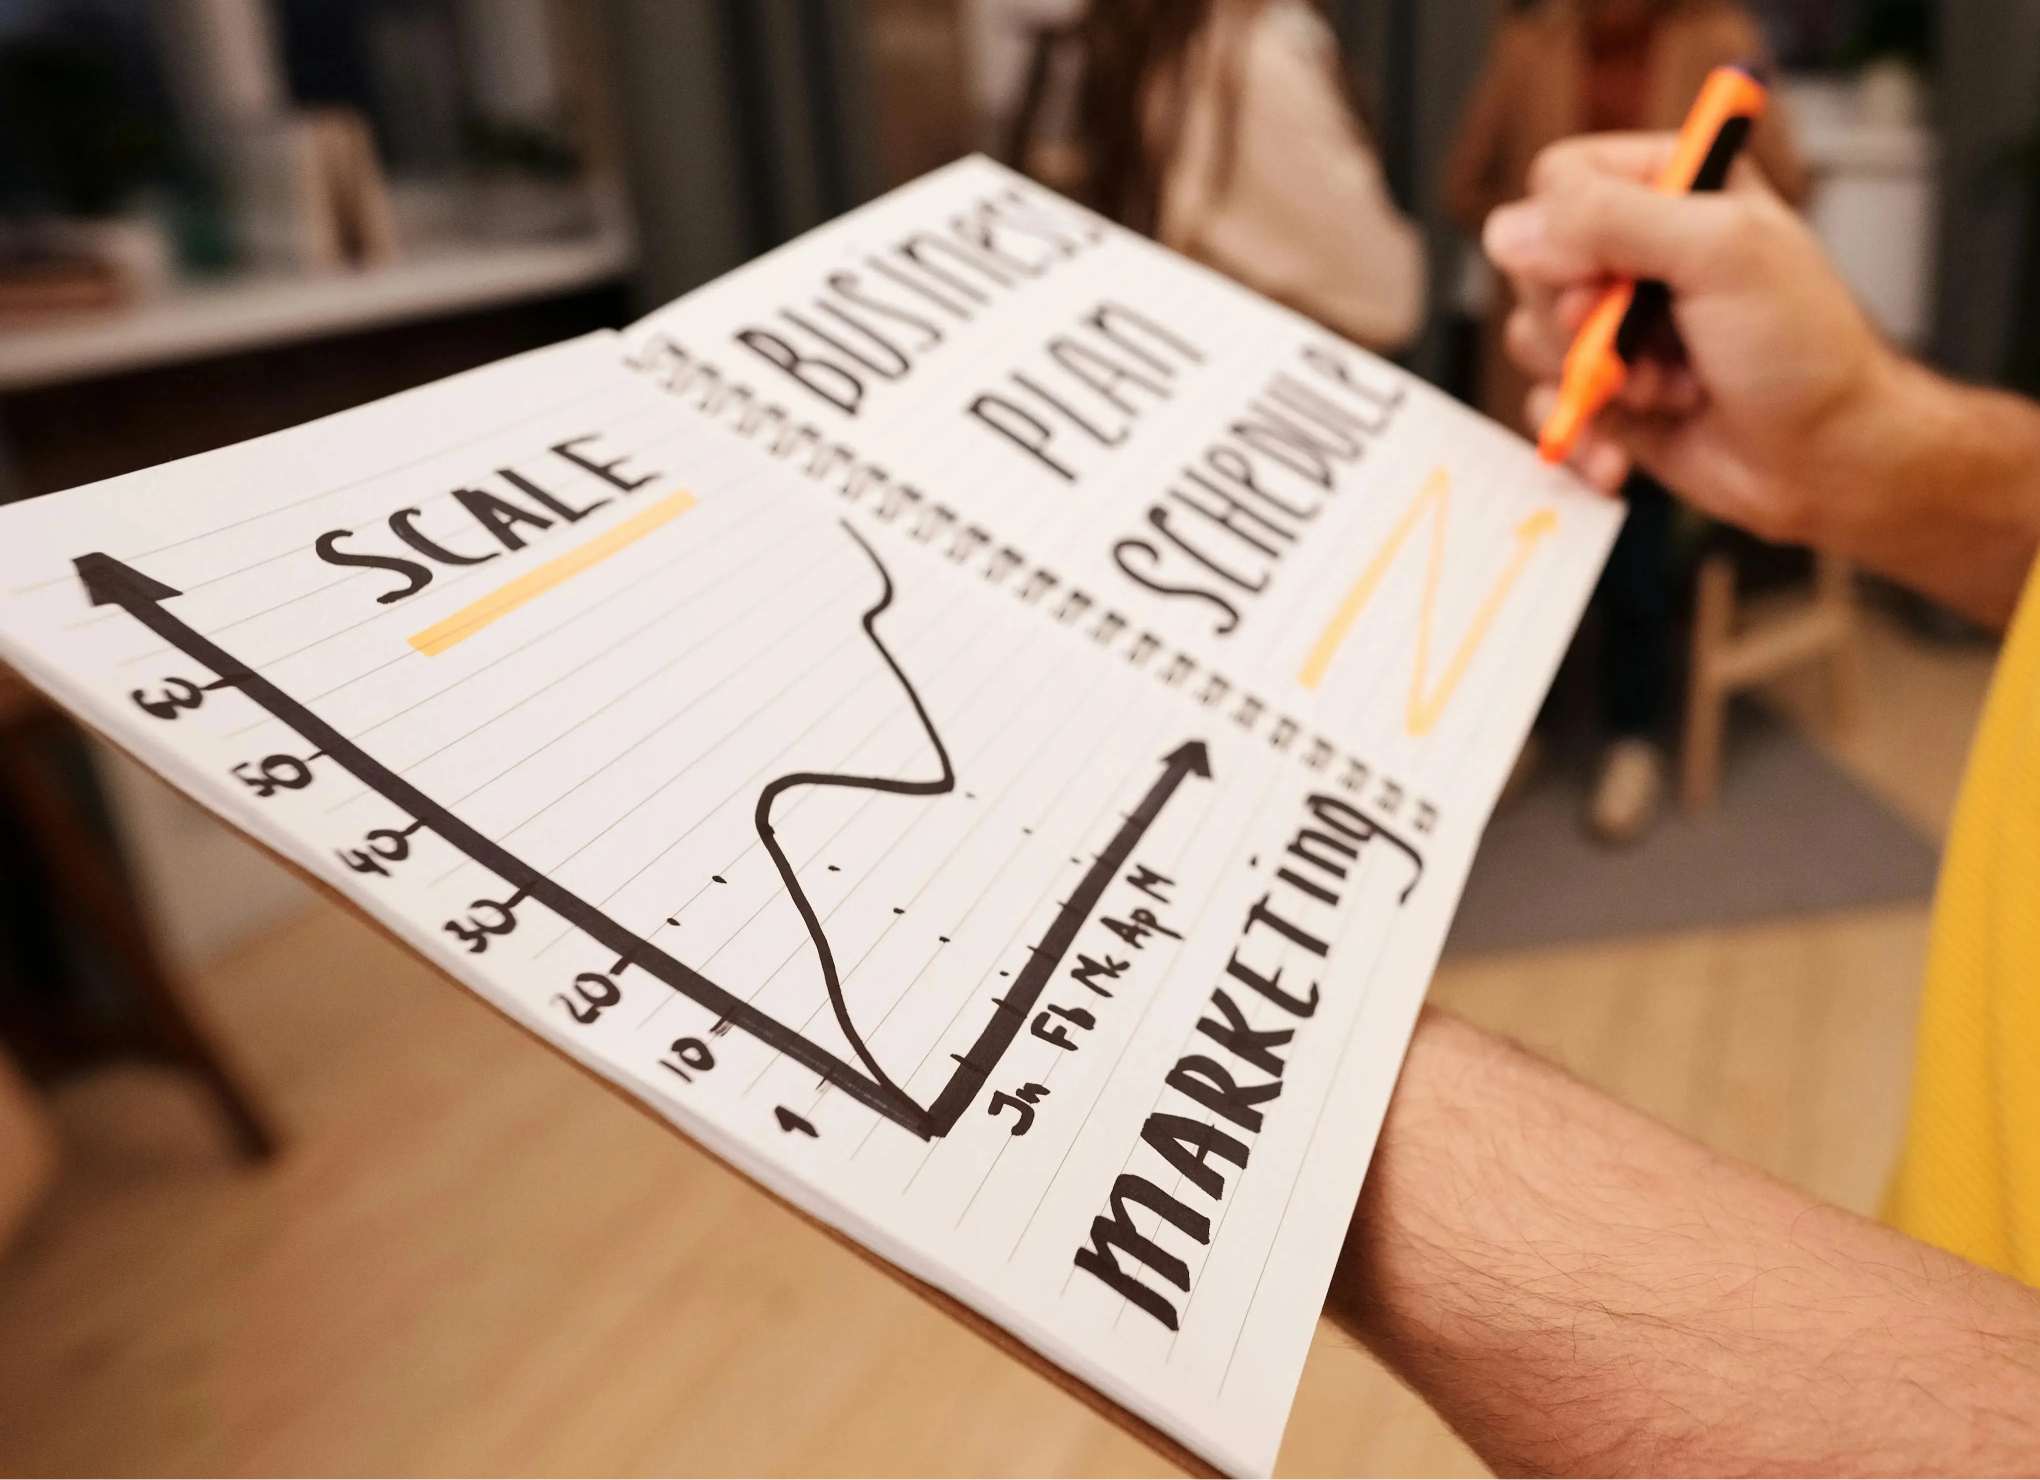 BUSINESS
PLAN
SCHEDULE
SCALE
60
50
40
30
20
10
1
Jn Fb Mc Ap M
MARKETING